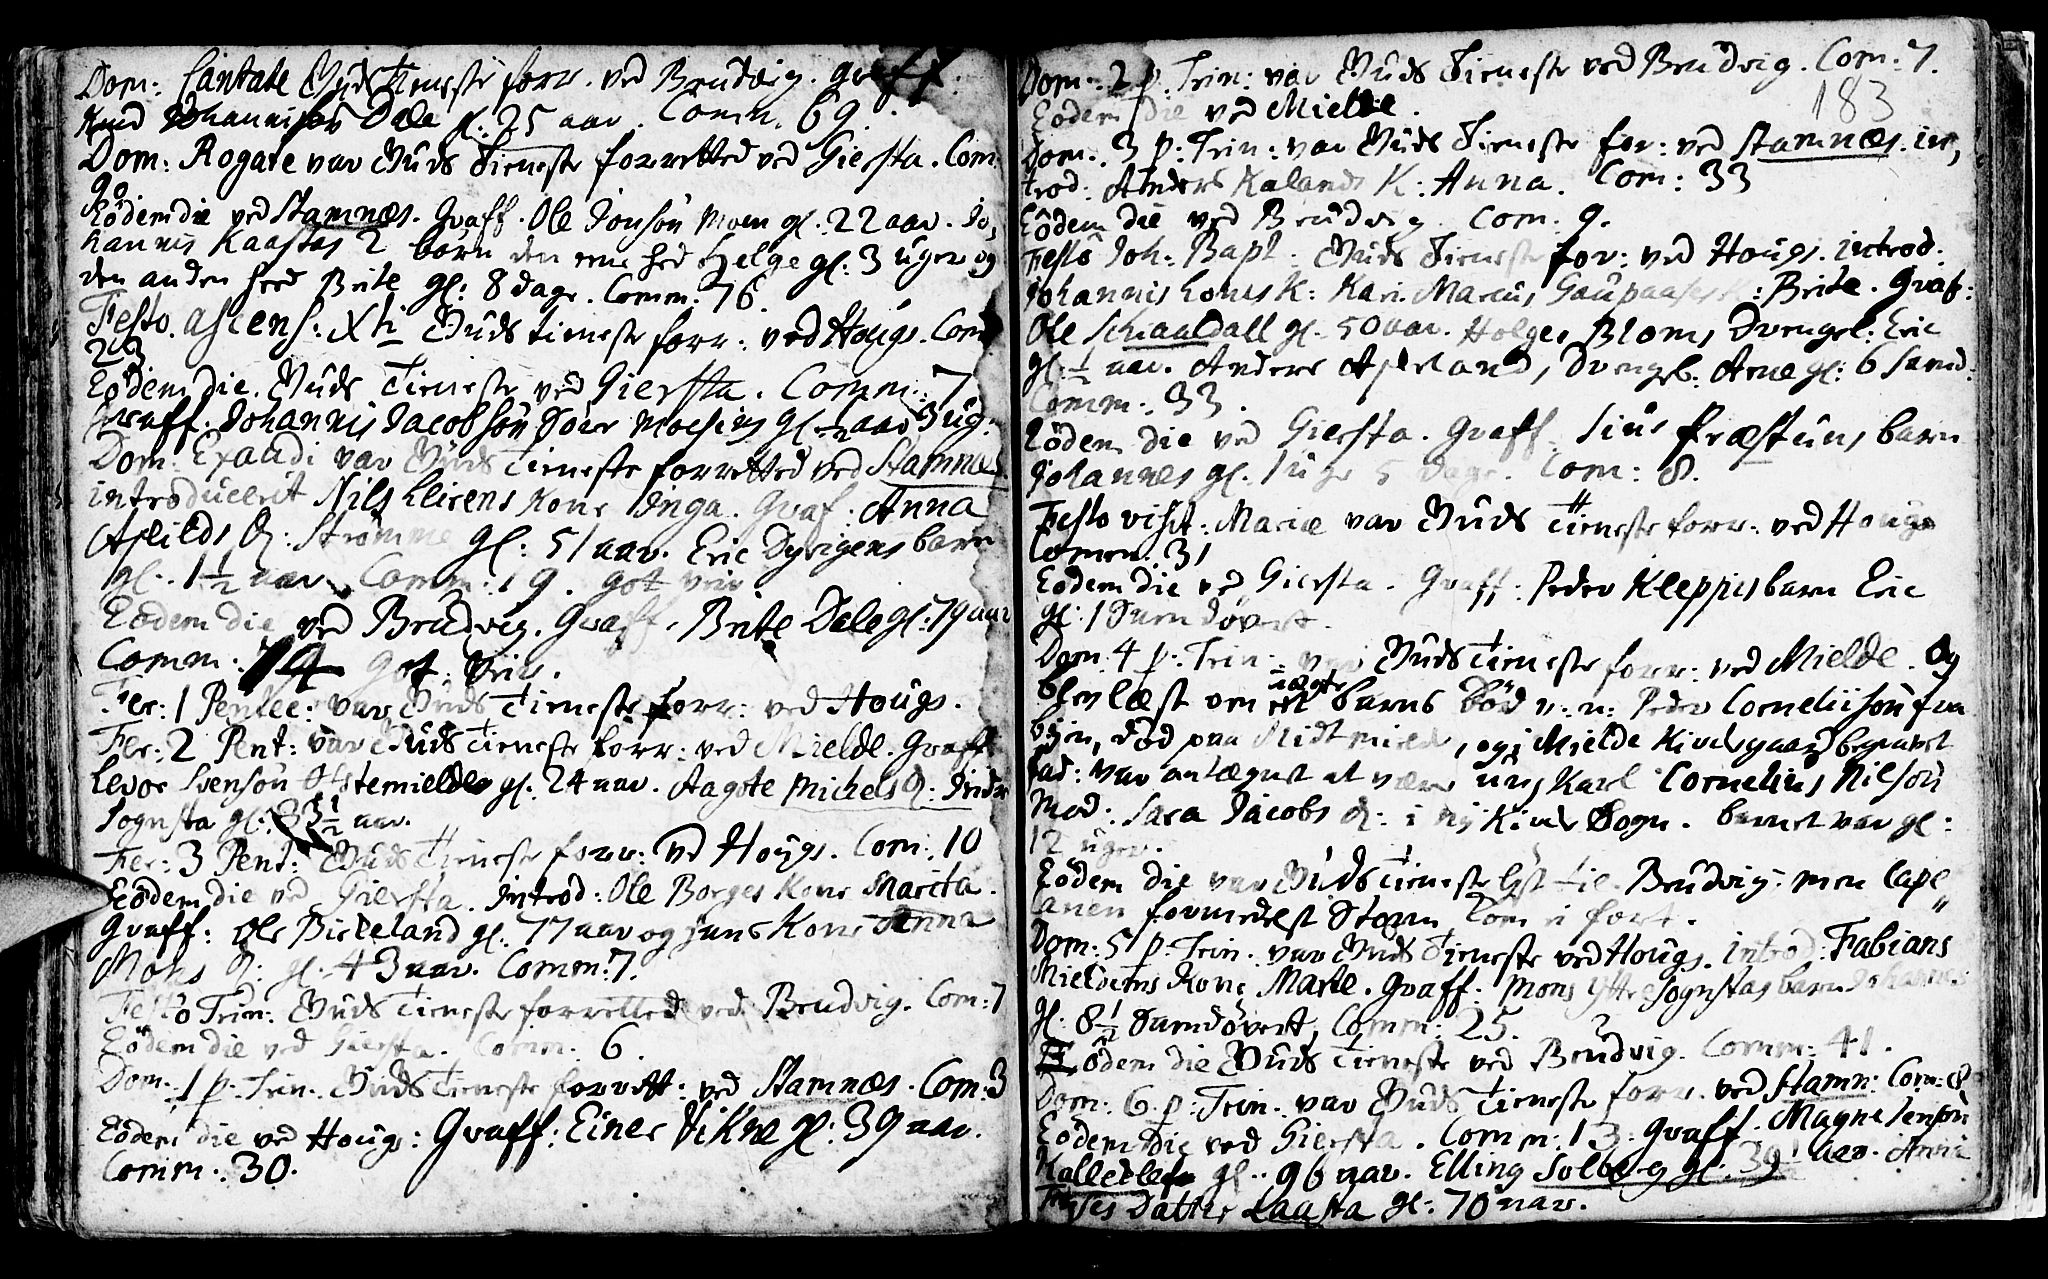 Dom: Cantate Guds tieneste forr. ved Brudvig. graff.
Knud Johannisøn Dale gl: 25 aar. Comm. 69.
Dom: Rogate var Guds Tieneste forretted ved Giersta. Com:
90
Eödem die ved Stamnæs. Graff. Ole Jonsøn Moen gl. 22 aar. Jo,
hannis Kaastas 2 børn den eene hed Helge gl: 3 uger og
den anden heed Brite gl: 8 dage. Comm. 76.
Festo. ascens: Xti Guds tieneste forr: ved Hougs. Com
23
Eödem die. Guds Tieneste ved Giersta. Comm: 7
Graff. Johannis Jacobsøn gl ½ aar 3 ug:
Dom: Exaudi var Guds Tieneste forretted ved Stamnes
introducerit Nils kone Inga. Graf. Anna
D: Strømme gl: 51 aar. Eric Dyvigens barn
gl. 1½ aar. Comm: 19. got veir
Eödem die ved Brudvig. Graff. Brite Dale gl: 79 aar
Comm: got veir.
Fer: 1 Pentec: var Guds Tieneste forr: ved Hougs.
Fer: 2 Pent: var Guds Tieneste forr: ved Mielde. Graff
Levor Svensøn gl: 24 aar. Aagote Michels D:
Sognsta gl: ½ aar.
Fer: 3 Pent: Guds Tieneste forr: ved Hougs. Com: 10
Eödem die ved Giersta. Introd: Ole Borges Kone Marita.
Graff: Ole Birkeland gl. 77 aar og hans Kone Anna
Mons D: gl. 43 aar. Comm: 7.
Festo Trin: Guds Tieneste forretted ved Brudvig. Com: 7
Eödem die ved Giersta. Comm: 6.
Dom: 1 p: Trin. Guds Tieneste forrett: ved Stamnæs. Com: 3
Eödem die ved Hougs: Graff: Einer Vikne gl: 39 aar.
Comm: 30.
Dom: 2 p. Trin: var Guds Tieneste ved Brudvig. Com: 7.
183
Eodem die ved Mielde.
Dom: 3 p: Trin: var Guds Tieneste for: ved Stamnæs. in,
trod: Anders Kalands K: Anna. Com: 33
Eödem die ved Brudvig. Com. 9.
Festo Joh: Bapt: Guds Tieneste for: ved Hougs. introd:
Johannis K: Kari. Marcus K: Brite. Graf:
Ole gl. 50 aar. Holger Bloms Drengeb: Eric
gl: ½ aar. Anders Drengeb: Arne gl: 6
Comm: 33.
Eödem die ved Giersta. Graff. barn
Johannes gl. 1 uge 5 dage. Com: 8.
Festo visit: Mariæ var Guds Tieneste forr: ved Hougs
Comm: 31
Eodem die ved Giersta. Graff: Peder Kleppes barn Eric
gl: 1
Dom: 4 p: Trin: var Guds Tieneste forr: ved Mielde. Og
blev læst over et ægte barns død n: n: Peder Corneliisøn fra
byen, død paa Midtmielde, og i Mielde Kirkegaard begravet
fad: var antegnet at være ung Karl Cornelius Nilsøn
Mod: Sara Jacobs D: i ny Kirke Sogn. barnet var gl:
12 uger.
Eödem die var Guds Tieneste lyst til Brudvig, men Capel
lanen formedelst Storm kom ei fort.
Dom: 5 p: Trin. var Guds Tieneste ved Hougs. introd: Fabians
Kone Marte. Graff: Mons Yttre Sognstas barn Johannes
gl: 8½ Comm: 25.
Eödem die Guds Tieneste ved Brudvig. Comm: 41.
Dom: 6 p: Trin. var Guds Tieneste forr. ved Stamn: Com: 8
Eodem die ved Giersta. Comm: 13. Graff. Magne
gl. 96 aar. Elling Solberg gl. aar. Anna
Datter Kaasta gl: 70 aar.